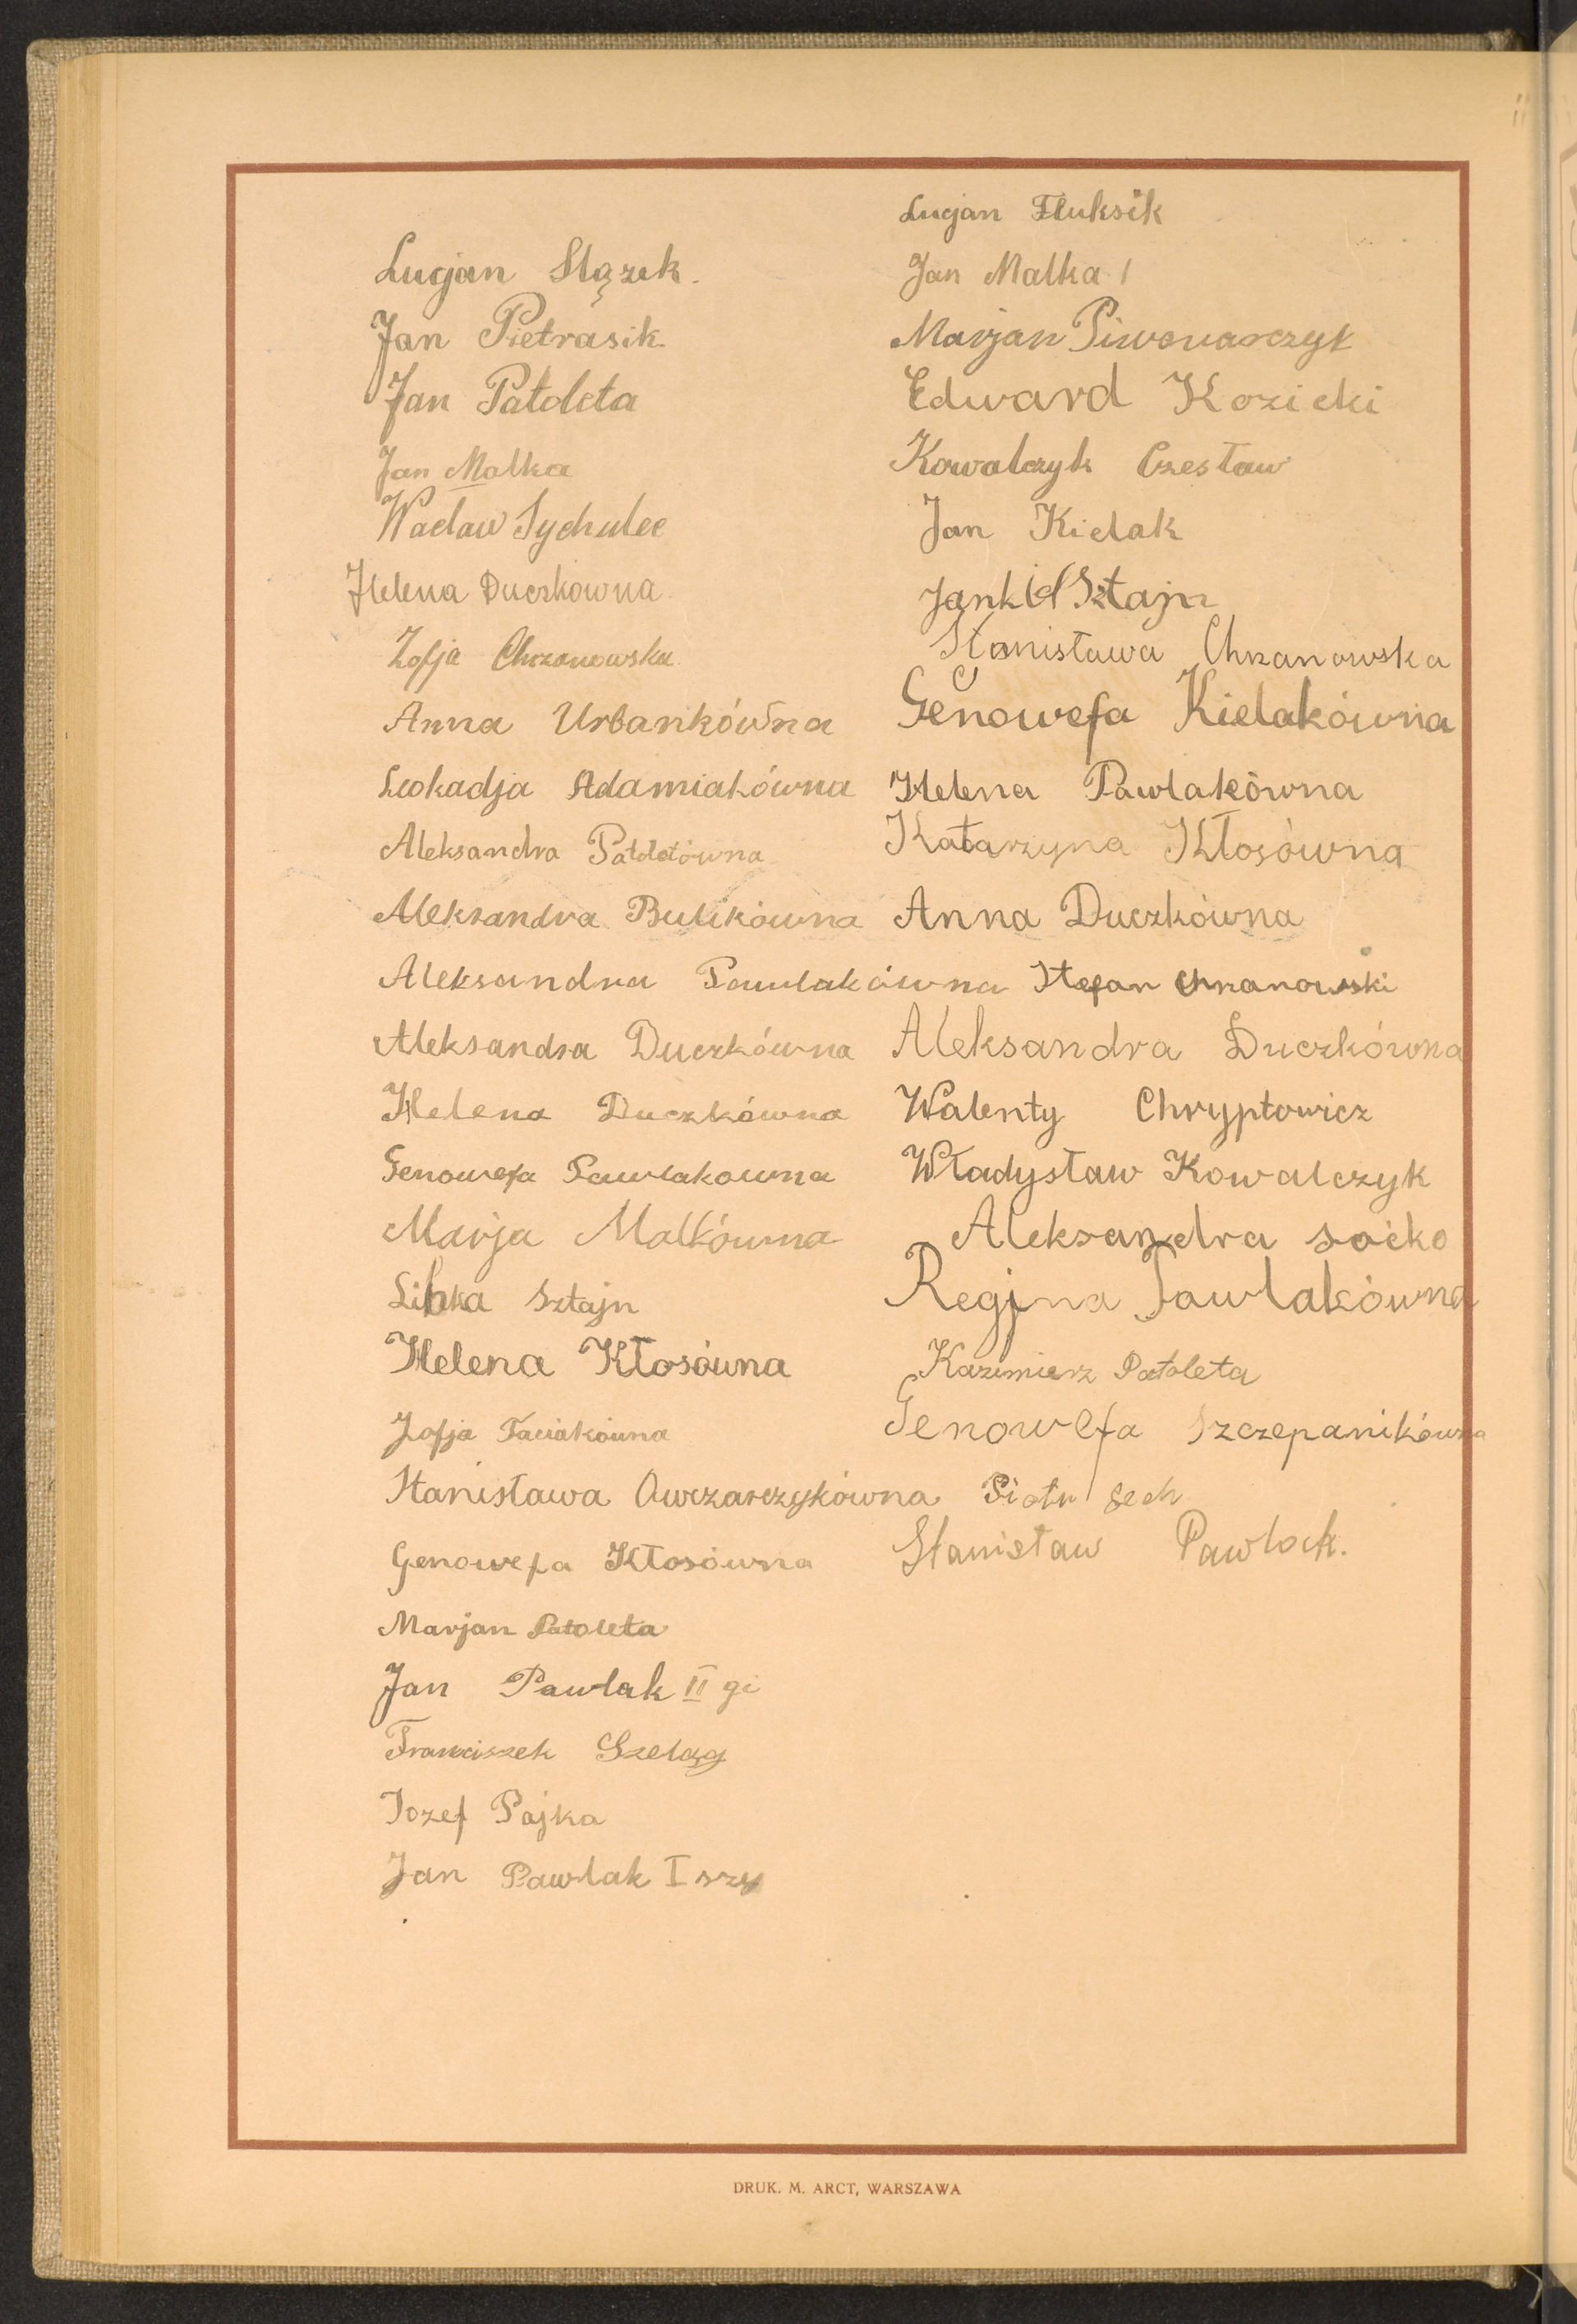 Lucjan Slązek.
Jan Pietrasik
Jan Patoleta
Jan Malka
Wacław Sychulec
Helena Duczkówna
Zofja Chrzanowska
Anna Urbankówna
Leokadja Adamiakówna
Aleksandra Patoletówna
Aleksandra Bulikówna
Aleksandra Pawlakówna
Aleksandra Duczkówna
Helena Duczkówna
Genowefa Pawlakowna
Marja Malkówna
Libka Sztajn
Helena Kłosówna
Zofja Taciakówna
Stanisława Owczarczykówna
Genowefa Kłosówna
Marjan Patoleta
Jan Pawlak II gi
Franciszek Szeląg
Jozef Pajka
Jan Pawlak I szy
Lucjan Fluksik
Jan Malka I
Marjan Piwowarczyk
Edward Kozicki
Kowalczyk Czesław
Jan Kielak
Jankiel Sztajn
Stanisława Chrzanowska
Genowefa Kielakówna
Helena Pawlakówna
Katarzyna Kłosówna
Anna Duczkówna
Stefan Chrzanowski
Aleksandra Duczkówna
Walenty Chryptowicz
Władysław Kowalczyk
Aleksandra Soćko
Regjna Pawlakówna
Kazimierz Patoleta
Genowefa Szczepanikówna
Piotr Sech
Stanisław
DRUK. M. ARCT, WARSZAWA